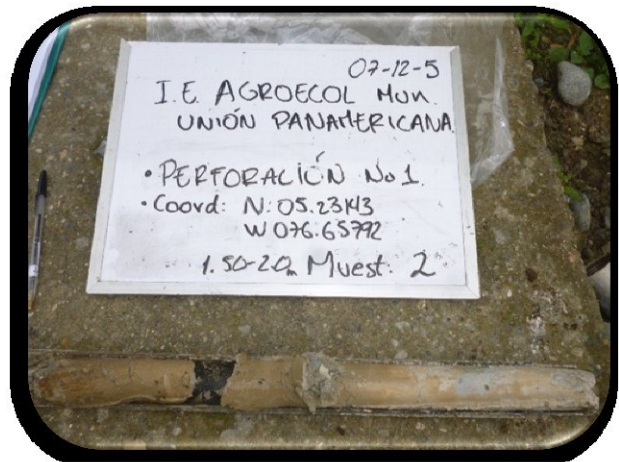 07-12-5
I.E. AGROECOL MUN.
UNIÓN PANAMERICANA.
• PERFORACIÓN No 1.
• Coord: N: 05.23143
W 076.65792
1.50-2.0m Muest: 2